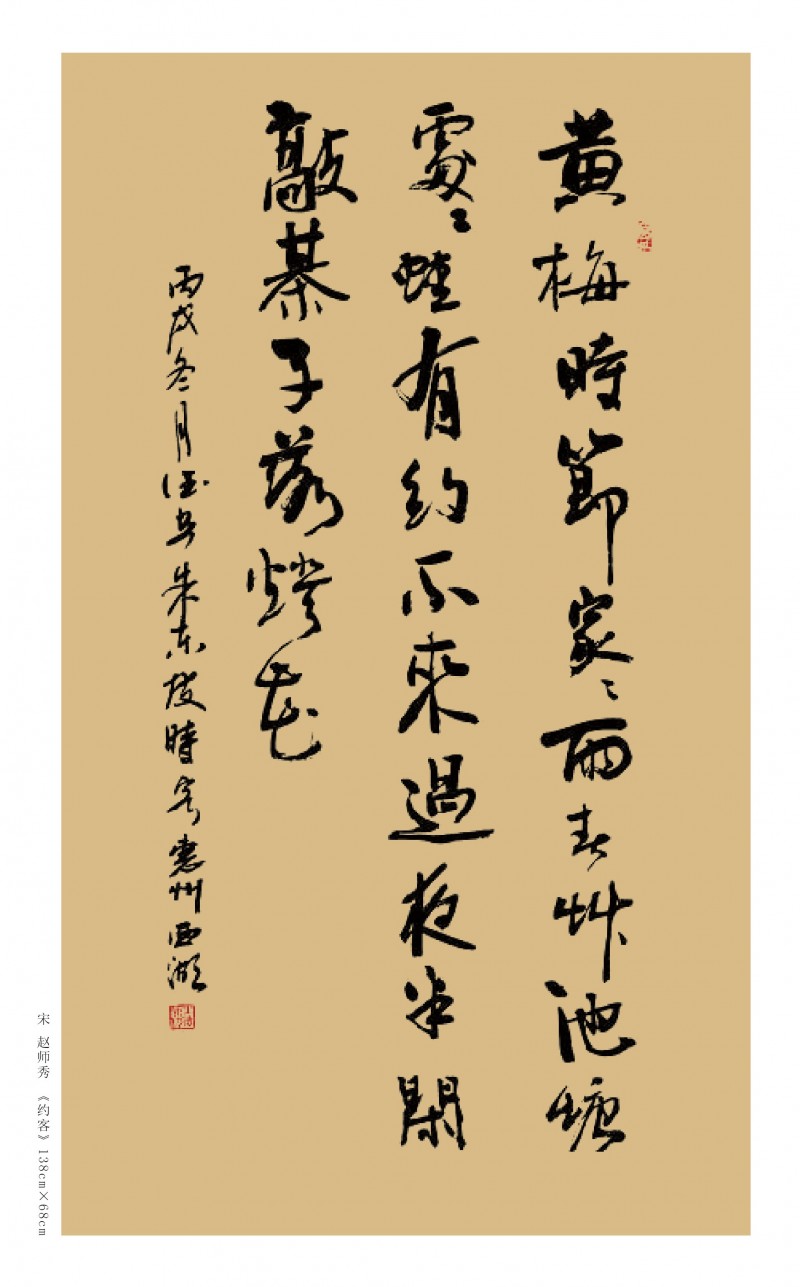 黄梅時節家〻雨青艸池塘
處〻蛙有約不來過夜半閑
敲棊子落燈花
丙戌冬月朱东坡時惠州西湖
宋 赵师秀 《约客》138cm×68cm